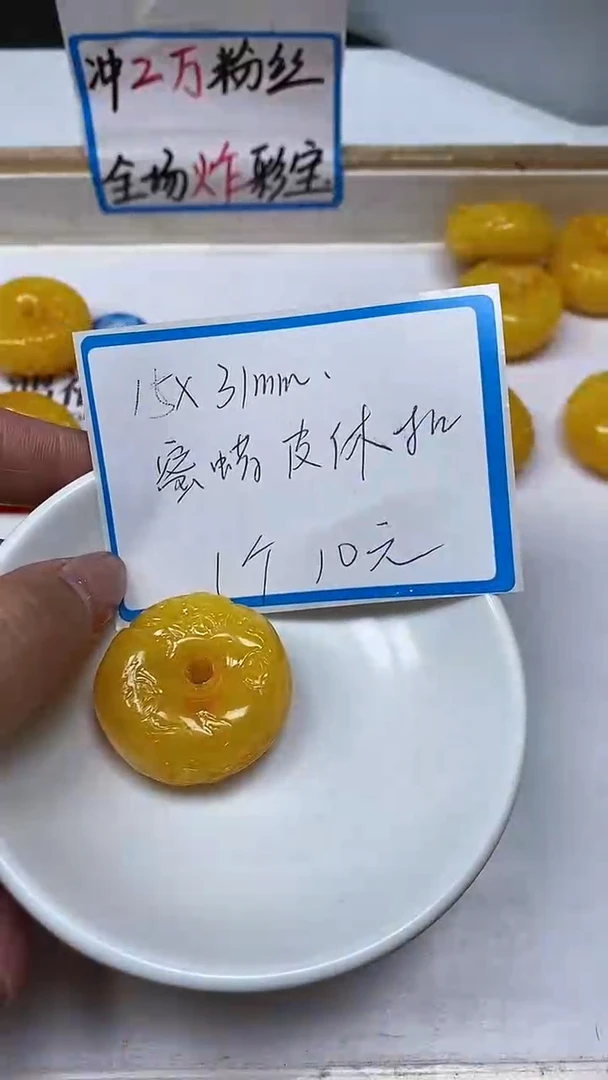 冲2万粉丝
全场炸彩宝
15X31mm、
蜜蜡皮休扣
1个10元